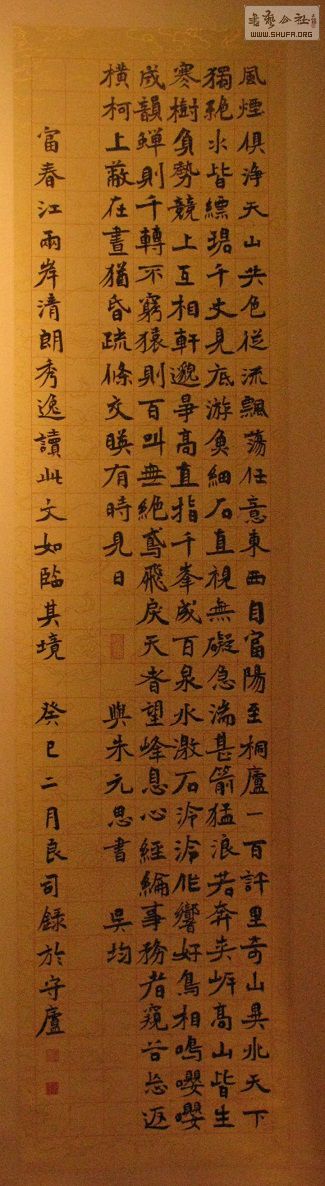 書藝公社
WWW.SHUFA.ORG
風煙俱淨天山共色從流飄蕩任意東西自富陽至桐廬一百許里奇山異水天下
獨絕水皆縹碧千丈見底游魚細石直視無礙急湍甚箭猛浪若奔夾岸高山皆生
寒樹負勢競上互相軒邈爭高直指千峯成百泉水激石泠泠作響好鳥相鳴嚶嚶
成韻蟬則千轉不窮猿則百叫無絕鳶飛戾天者望峰息心經綸事務者窺谷忘返
橫柯上蔽在晝猶昏疏條交暎有時見日 與朱元思書 吳均
富春江兩岸清朗秀逸讀此文如臨其境 癸巳二月良司錄於守廬